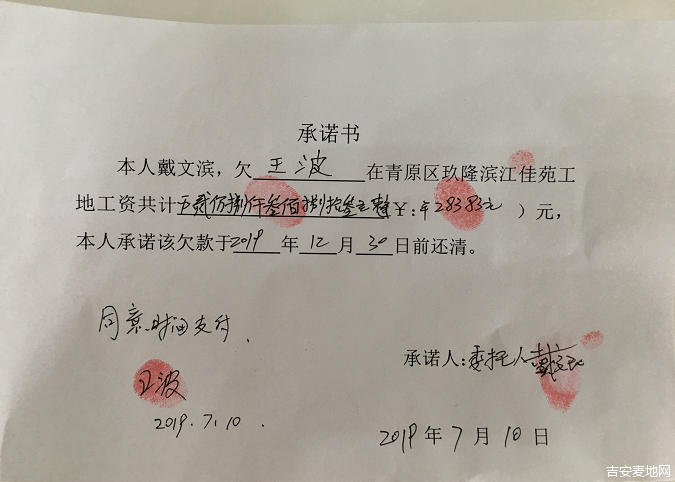 承诺书
本人戴文滨，欠 王波 在青原区玖隆滨江佳苑工
地工资共计 贰万捌仟叁佰捌拾叁元整 ￥：28383元 ）元，
本人承诺该欠款于2019 年 12 月 30 日前还清。
同意 支付
承诺人：委托人
王波
2019.7.10.
2019 年 7 月 10 日
吉安麦地网